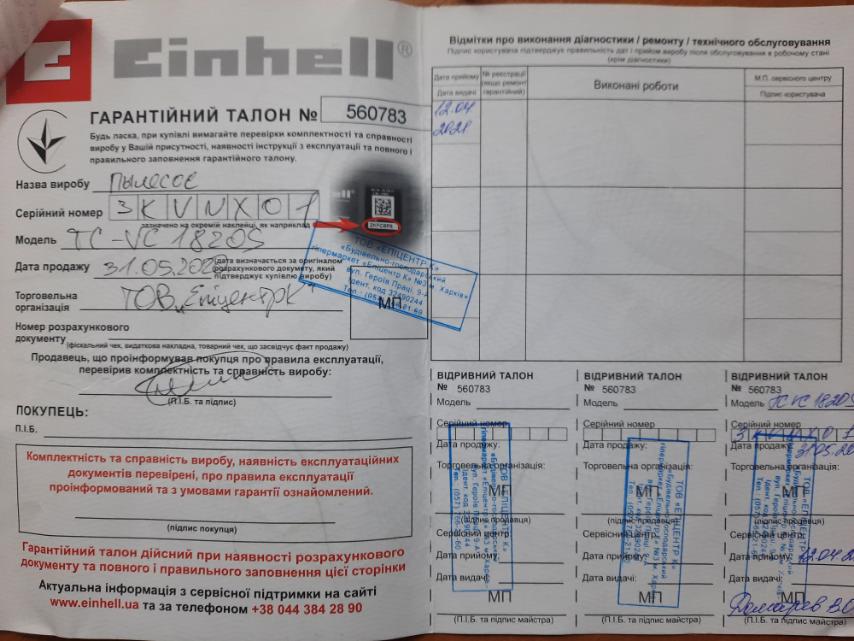 Einhell®
ГАРАНТІЙНИЙ ТАЛОН № 560783
Будь ласка, при купівлі вимагайте перевірки комплектності та справності
виробу у Вашій присутності, наявності інструкції з експлуатації та повного і
правильного заповнення гарантійного талону.
Назва виробу Пылесос
Серійний номер 3KVNX01
зазначено на окремій наклейці, як наприклад
Модель TC-VC 1820S
Дата продажу 31.05.
(дата визначається за оригіналом
розрахункового документу, який
підтверджує купівлю виробу)
Торговельна
організація ТОВ „Епіцентр К"
МП
Номер розрахункового
документу
(фіскальний чек, видаткова накладна, товарний чек, що засвідчує факт продажу)
Продавець, що проінформував покупця про правила експлуатації,
перевірив комплектність та справність виробу:
(П.І.Б. та підпис)
ПОКУПЕЦЬ:
П.І.Б.
Комплектність та справність виробу, наявність експлуатаційних
документів перевірені, про правила експлуатації
проінформований та з умовами гарантії ознайомлений.
(підпис покупця)
Гарантійний талон дійсний при наявності розрахункового
документу та повного і правильного заповнення цієї сторінки
Актуальна інформація з сервісної підтримки на сайті
www.einhell.ua та за телефоном +38 044 384 28 90
ТОВ «ЕПІЦЕНТР К»
«Будівельно-господарський
гіпермаркет «Епіцентр К» №3 м. Харків»
вул. Героїв Праці, 9-А
Ідент. код 32490244
Відмітки про виконання діагностики / ремонту / технічного обслуговування
Підпис користувача підтверджує правильність дат і прийом виробу після обслуговування в робочому стані
(крім діагностики)
Дата прийому
Дата видачі
№ реєстрації
(якщо ремонт
гарантійний)
Виконані роботи
М.П. сервісного центру
Підпис користувача
12.04
2021
ВІДРИВНИЙ ТАЛОН
№ 560783
Модель
Серійний номер
Дата продажу:
Торговельна організація:
МП
Сервісний центр:
Дата прийому:
Дата видачі:
МП
(П.І.Б. та підпис майстра)
ВІДРИВНИЙ ТАЛОН
№ 560783
Модель
Серійний номер
Дата продажу:
Торговельна організація:
МП
Сервісний центр:
Дата прийому:
Дата видачі:
МП
(П.І.Б. та підпис майстра)
ВІДРИВНИЙ ТАЛОН
№ 560783
Модель TC VC 1820S
Серійний номер
3KVNX01
Дата продажу: 31.05.
Торговельна організація:
МП
Сервісний центр:
Дата прийому: 12.04.
Дата видачі:
МП
(П.І.Б. та підпис майстра)